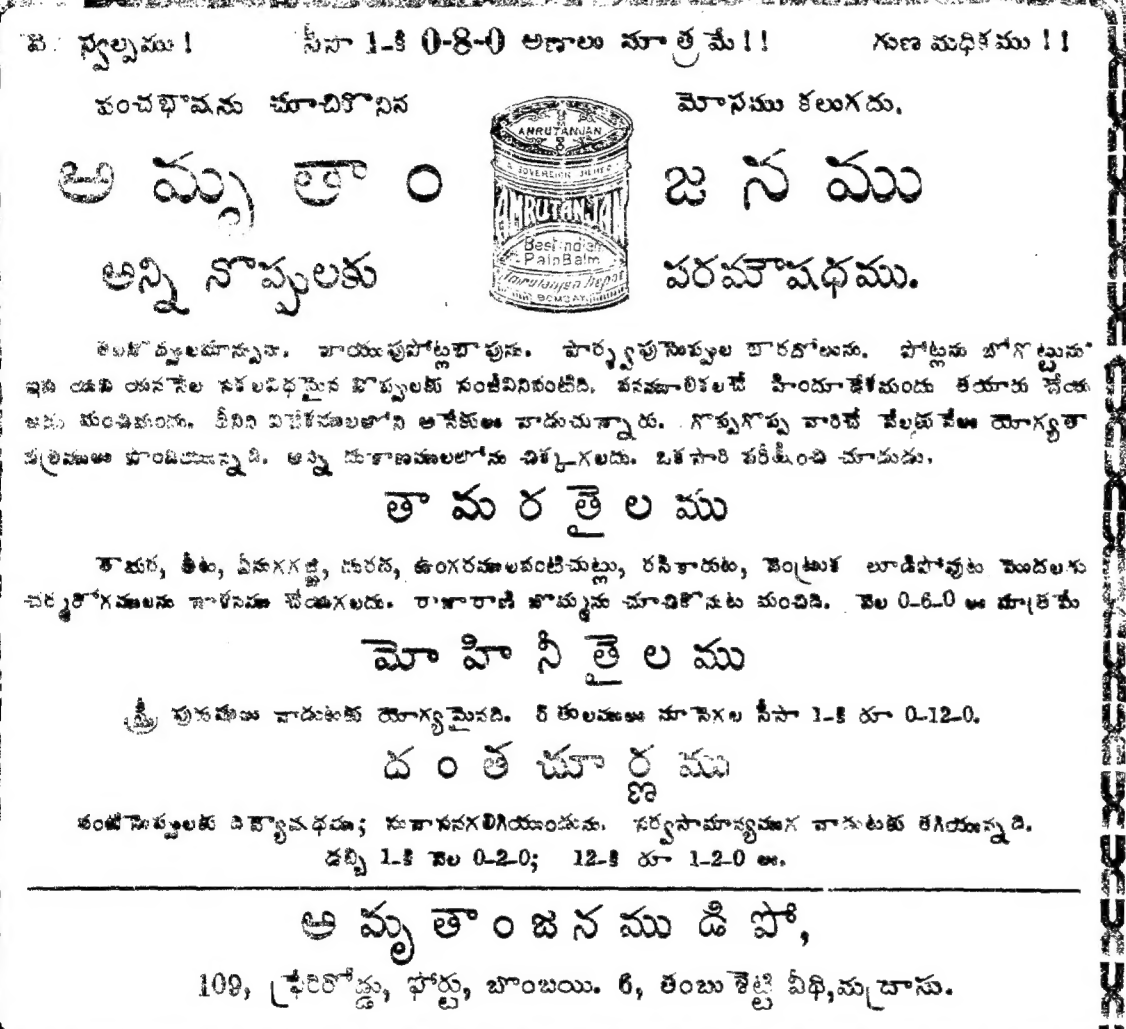 వె. స్వల్పము! సీసా 1-కి 0-8-0 అణాలు మాత్రమే!! గుణ మధికము!!
పంచభాషను చూచికొనిన మోసము కలుగదు.
AMRUTANJAN
అమృతాంజనము
AMRUTANJAN
Best Indian
Pain Balm
Amrutanjan Depot
BOMBAY
అన్ని నొప్పులకు పరమౌషధము.
తలనొప్పులమాన్పును. వాయుపుపోట్లబాపును. పార్శ్వపునొప్పుల బారదోలును. పోట్లను బోగొట్టును
ఇది యది యననేల సకలవిధమైన నొప్పులకు సంజీవినివంటిది. వనమూలికలచే హిందూదేశమందు తయారు చేయ
బడు మందిదిం. దీనిని విదేశములలోని అనేకులు వాడుచున్నారు. గొప్పగొప్ప వారిచే వేలకువేలు యోగ్యతా
పత్రికములు పొందియున్నది. అన్ని దుకాణములలోను చిక్కగలదు. ఒకసారి పరీక్షించి చూడుడు.
తామరతైలము
తామర, తీట, ఏనుగగజ్జి, దురద, ఉంగరములవంటిచుట్లు, రసికారుట, వెంట్రుక లూడిపోవుట మొదలగు
చర్మరోగములను నాశనము చేయగలదు. రాజారాణి బొమ్మను చూచికొనుట మంచిది. వెల 0-6-0 అ మాత్రమే
మోహినీతైలము
స్త్రీ పురుషులు వాడుటకు యోగ్యమైనది. 5 తులములు నూనెగల సీసా 1-కి రూ 0-12-0.
దంతచూర్ణము
పంటినొప్పులకు దివ్యౌషధము; సువాసనగలిగియుండును. సర్వసామాన్యముగ వాడుటకు తగియున్నది.
డబ్బి 1-కి వెల 0-2-0; 12-కి రూ 1-2-0 అ.
అమృతాంజనము డిపో,
109, ఫ్రేరిరోడ్డు, ఫోర్టు, బొంబయి. 6, తంబుశెట్టి వీథి, మద్రాసు.